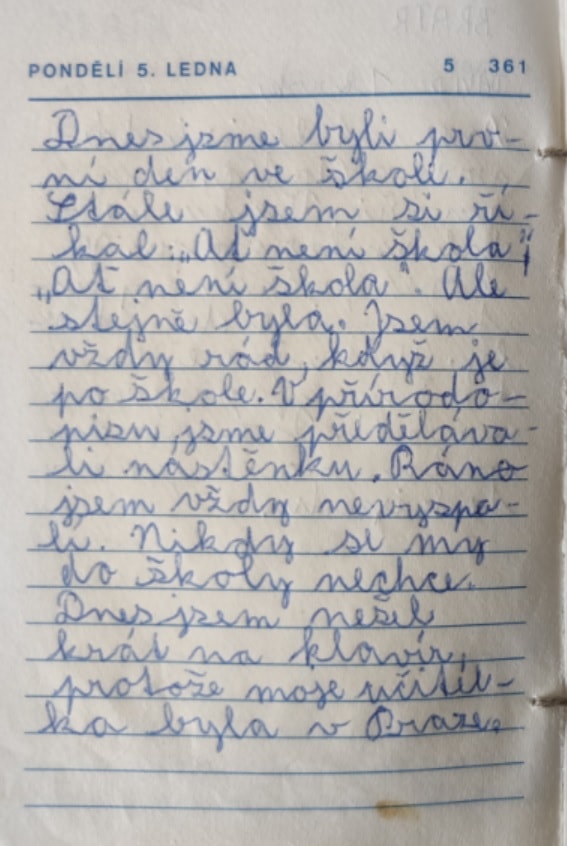 PONDĚLÍ 5. LEDNA 5 361
Dnes jsme byli prv-
ní den ve škole.
Stále jsem si ří-
kal: „Ať není škola"
„Ať není škola". Ale
stejně byla. Jsem
vždy rád, když je
po škole. V přírodo-
pisu jsme předěláva-
li nástěnku. Ráno
jsem vždy nevyspa-
lí. Nikdy se my
do školy nechce.
Dnes jsem nešel
krát na klavír,
protože moje učitel-
ka byla v Praze.